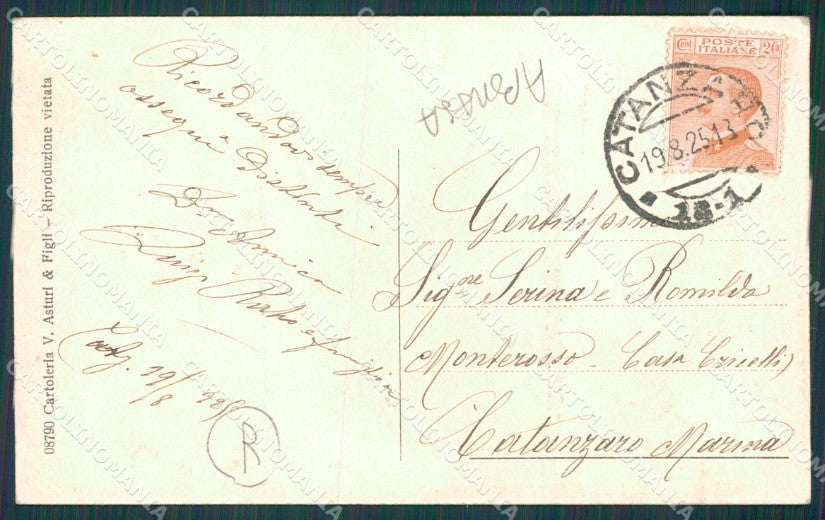 08790 Cartoleria V. Asturi & Figli - Riproduzione vietata
Ricordandovi sempre
ossequi distinti
Luigi
19/8
R
POSTE ITALIANE
Cent 20
CATANZARO
19.8.25 13
18-1
Gentilissime
Sig.ne Serina e Romilda
Monterosso - Casa
Catanzaro Marina
CARTOLINOMANIA